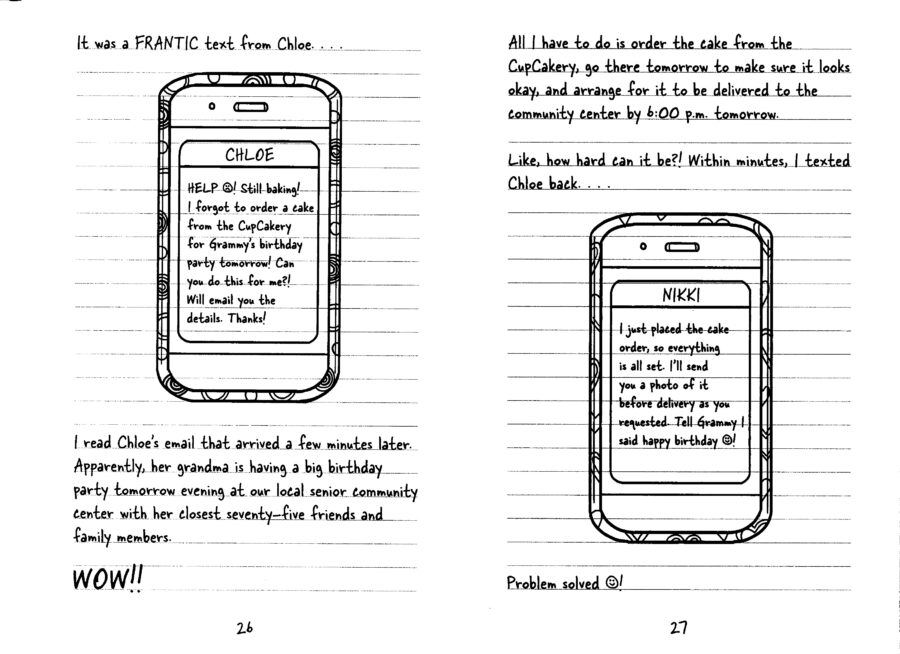 It was a FRANTIC text from Chloe. . . .
CHLOE
HELP ☹! Still baking!
I forgot to order a cake
from the CupCakery
for Grammy's birthday
party tomorrow! Can
you do this for me?!
Will email you the
details. Thanks!
I read Chloe's email that arrived a few minutes later.
Apparently, her grandma is having a big birthday
party tomorrow evening at our local senior community
center with her closest seventy-five friends and
family members.
WOW!!
26
All I have to do is order the cake from the
CupCakery, go there tomorrow to make sure it looks
okay, and arrange for it to be delivered to the
community center by 6:00 p.m. tomorrow.
Like, how hard can it be?! Within minutes, I texted
Chloe back. . . .
NIKKI
I just placed the cake
order, so everything
is all set. I'll send
you a photo of it
before delivery as you
requested. Tell Grammy I
said happy birthday ☺!
Problem solved ☺!
27